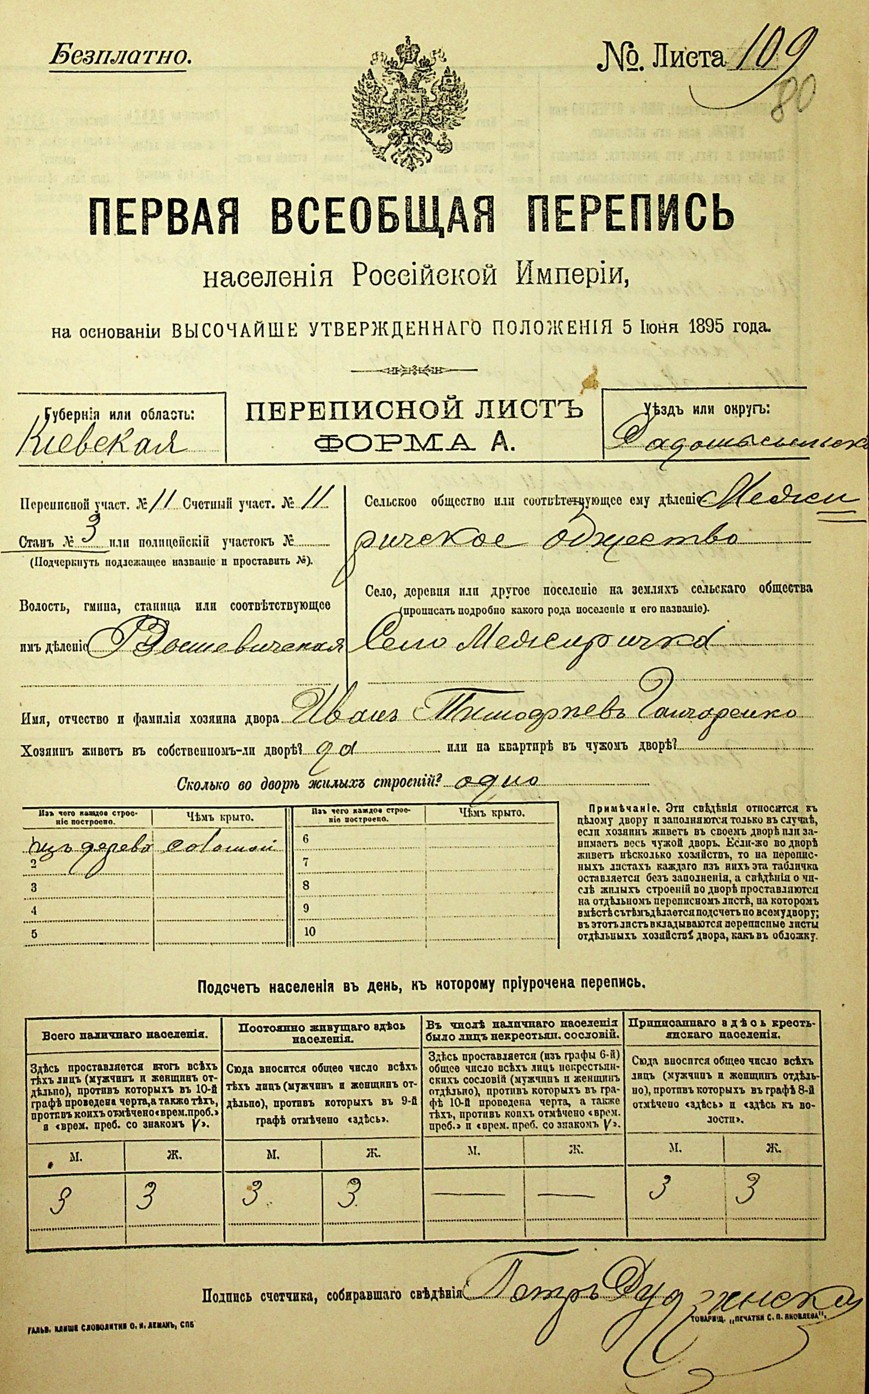 Безплатно.
№. Листа 109
80
ПЕРВАЯ ВСЕОБЩАЯ ПЕРЕПИСЬ
населенія Россійской Имперіи,
на основаніи ВЫСОЧАЙШЕ УТВЕРЖДЕННАГО ПОЛОЖЕНІЯ 5 Іюня 1895 года.
Губернія или область:
Кіевская
ПЕРЕПИСНОЙ ЛИСТЪ
ФОРМА А.
Уѣздъ или округъ:
Переписной участ. № 11 Счетный участ. № 11
Станъ № 3 или полицейскій участокъ №
(Подчеркнуть подлежащее названіе и проставить №).
Волость, гмина, станица или соотвѣтствующее
имъ дѣленіе
Сельское общество или соотвѣтствующее ему дѣленіе Межи
ричское общество
Село, деревня или другое поселеніе на земляхъ сельскаго общества
(прописать подробно какого рода поселеніе и его названіе).
Село Межиричка
Имя, отчество и фамилія хозяина двора Иванъ Тимофѣевъ Гончаренко
Хозяинъ живетъ въ собственномъ-ли дворѣ? да или на квартирѣ въ чужомъ дворѣ?
Сколько во дворѣ жилыхъ строеній? одно
Изъ чего каждое строеніе построено.
Чѣмъ крыто.
Изъ чего каждое строеніе построено.
Чѣмъ крыто.
изъ дерева соломой
2
3
4
5
6
7
8
9
10
Примѣчаніе. Эти свѣдѣнія относятся къ
цѣлому двору и заполняются только въ случаѣ,
если хозяинъ живетъ въ своемъ дворѣ или за-
нимаетъ весь чужой дворъ. Если-же во дворѣ
живетъ нѣсколько хозяйствъ, то на перепис-
ныхъ листахъ каждаго изъ нихъ эта табличка
оставляется безъ заполненія, а свѣдѣнія о чи-
слѣ жилыхъ строеній во дворѣ проставляются
на отдѣльномъ переписномъ листѣ, на которомъ
вмѣстѣ съ тѣмъ дѣлается подсчетъ по всему двору;
въ этотъ листъ вкладываются переписные листы
отдѣльныхъ хозяйствъ двора, какъ въ обложку.
Подсчетъ населенія въ день, къ которому пріурочена перепись.
Всего наличнаго населенія.
Здѣсь проставляется итогъ всѣхъ
тѣхъ лицъ (мужчинъ и женщинъ от-
дѣльно), противъ которыхъ въ 10-й
графѣ проведена черта, а также тѣхъ,
противъ коихъ отмѣчено «врем. проб.»
и «врем. преб. со знакомъ V».
Постоянно живущаго здѣсь
населенія.
Сюда вносится общее число всѣхъ
тѣхъ лицъ (мужчинъ и женщинъ от-
дѣльно), противъ которыхъ въ 9-й
графѣ отмѣчено «здѣсь».
Въ числѣ наличнаго населенія
было лицъ некрестьян. сословій.
Здѣсь проставляется (изъ графы 6-й)
общее число всѣхъ лицъ некрестьян-
скихъ сословій (мужчинъ и женщинъ
отдѣльно), противъ которыхъ въ гра-
фѣ 10-й проведена черта, а также
тѣхъ, противъ коихъ отмѣчено «врем.
преб.» и «врем. преб. со знакомъ V».
Приписаннаго здѣсь кресть-
янскаго населенія.
Сюда вносится общее число всѣхъ
лицъ (мужчинъ и женщинъ отдѣль-
но), противъ которыхъ въ графѣ 8-й
отмѣчено «здѣсь» и «здѣсь въ во-
лости».
М. Ж. М. Ж. М. Ж. М. Ж.
3 3 3 3 — — 3 3
Подпись счетчика, собиравшаго свѣдѣнія Петръ
ГАЛЬВ. КЛИШЕ СЛОВОЛИТНИ О. И. ЛЕМАНЪ, СПБ
ТОВАРИЩ. „ПЕЧАТНИ С. П. ЯКОВЛЕВА".